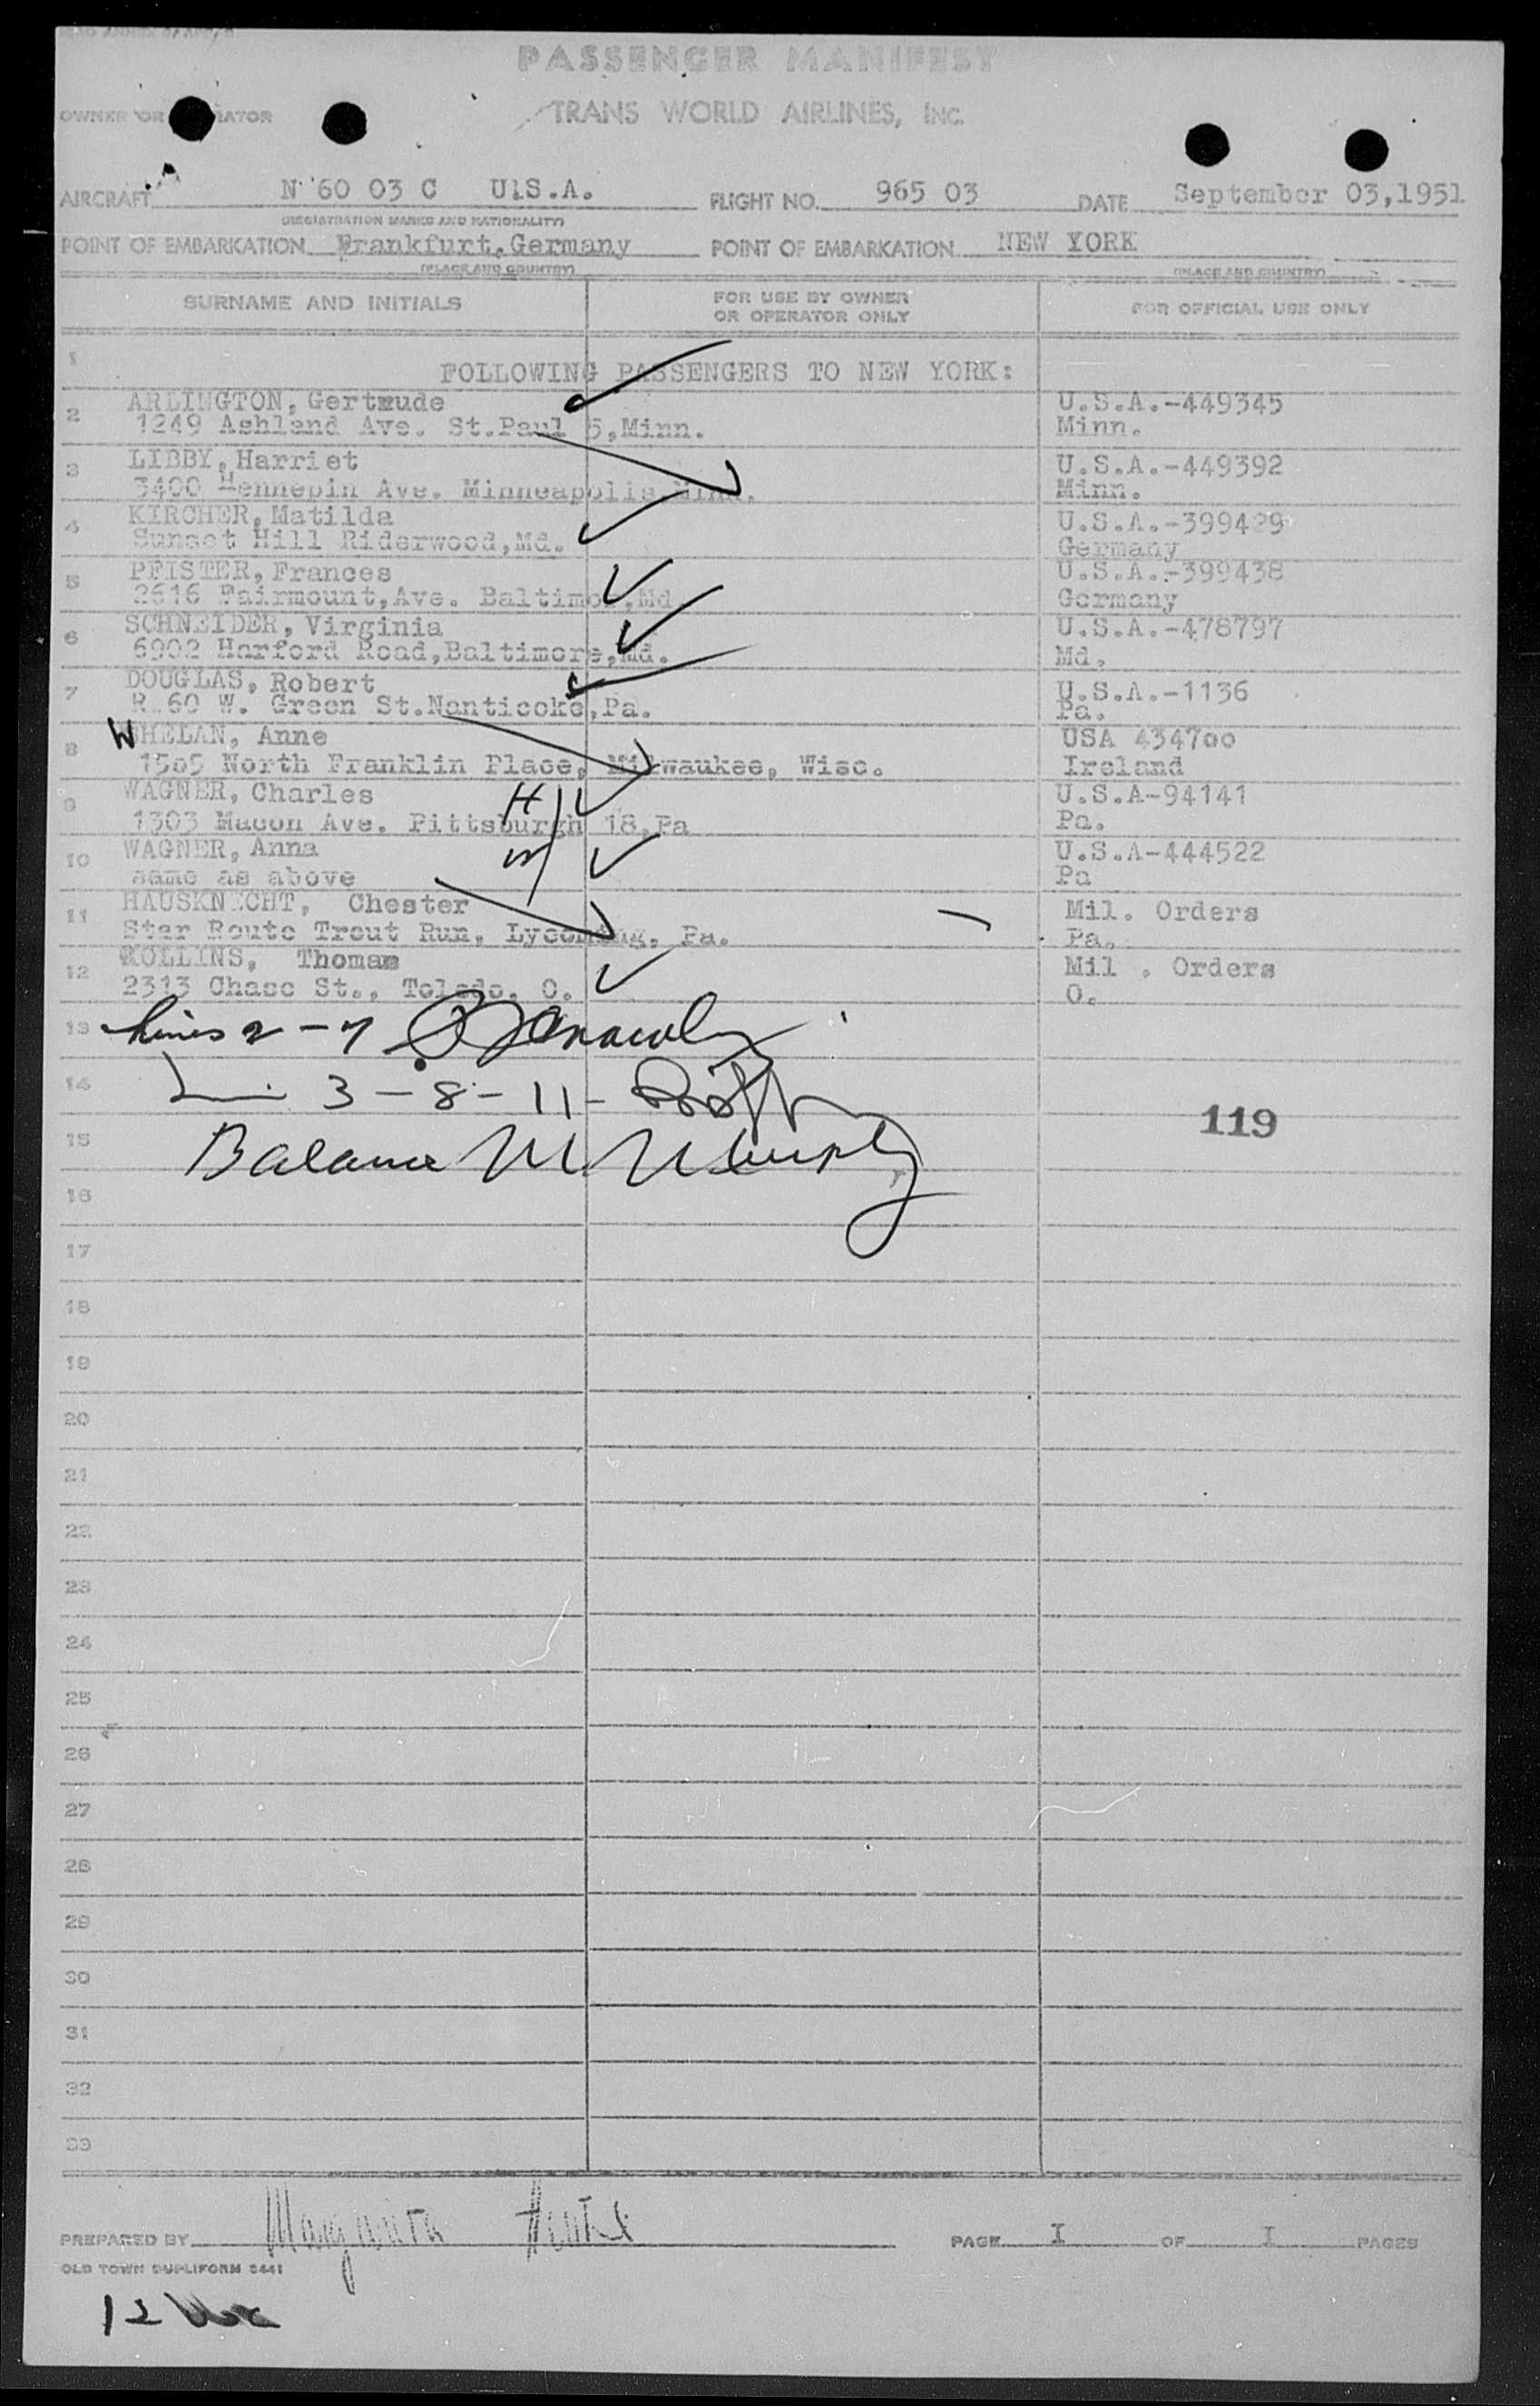 PASSENGER MANIFEST
OWNER OR TRANS WORLD AIRLINES, INC.
AIRCRAFT N 60 03 C U.S.A. FLIGHT NO. 965 03 DATE September 03,1951
(REGISTRATION MARKS AND NATIONALITY)
POINT OF EMBARKATION Frankfurt,Germany POINT OF EMBARKATION NEW YORK
(PLACE AND COUNTRY) (PLACE AND COUNTRY)
SURNAME AND INITIALS FOR USE BY OWNER OR OPERATOR ONLY FOR OFFICIAL USE ONLY
1 FOLLOWING PASSENGERS TO NEW YORK:
2 ARLINGTON, Gertrude U.S.A.-449345
1249 Ashland Ave. St.Paul 5,Minn. Minn.
3 LIBBY, Harriet U.S.A.-449392
3400 Hennepin Ave. Minneapolis,Minn. Minn.
4 KIRCHER, Matilda U.S.A.-399429
Sunset Hill Riderwood,Md. Germany
5 PFISTER, Frances U.S.A.-399438
2616 Fairmount,Ave. Baltimor,Md Germany
6 SCHNEIDER, Virginia U.S.A.-478797
6902 Harford Road,Baltimore,Md. Md.
7 DOUGLAS, Robert U.S.A.-1136
R.60 W. Green St.Nanticoke,Pa. Pa.
8 WHELAN, Anne USA 434700
1505 North Franklin Place, Milwaukee, Wisc. Ireland
9 WAGNER, Charles H U.S.A-94141
1303 Macon Ave. Pittsburgh 18,Pa Pa.
10 WAGNER, Anna W U.S.A-444522
same as above Pa
11 HAUSKNECHT, Chester Mil. Orders
Star Route Trout Run, Lycoming, Pa. Pa.
12 COLLINS, Thomas Mil . Orders
2313 Chase St., Toledo, O. O.
13 Lines 2-7
14 3-8-11-
119
15 Balance M Murphy
16
17
18
19
20
21
22
23
24
25
26
27
28
29
30
31
32
33
PREPARED BY PAGE I OF I PAGES
OLD TOWN DUPLIFORM 3441
12